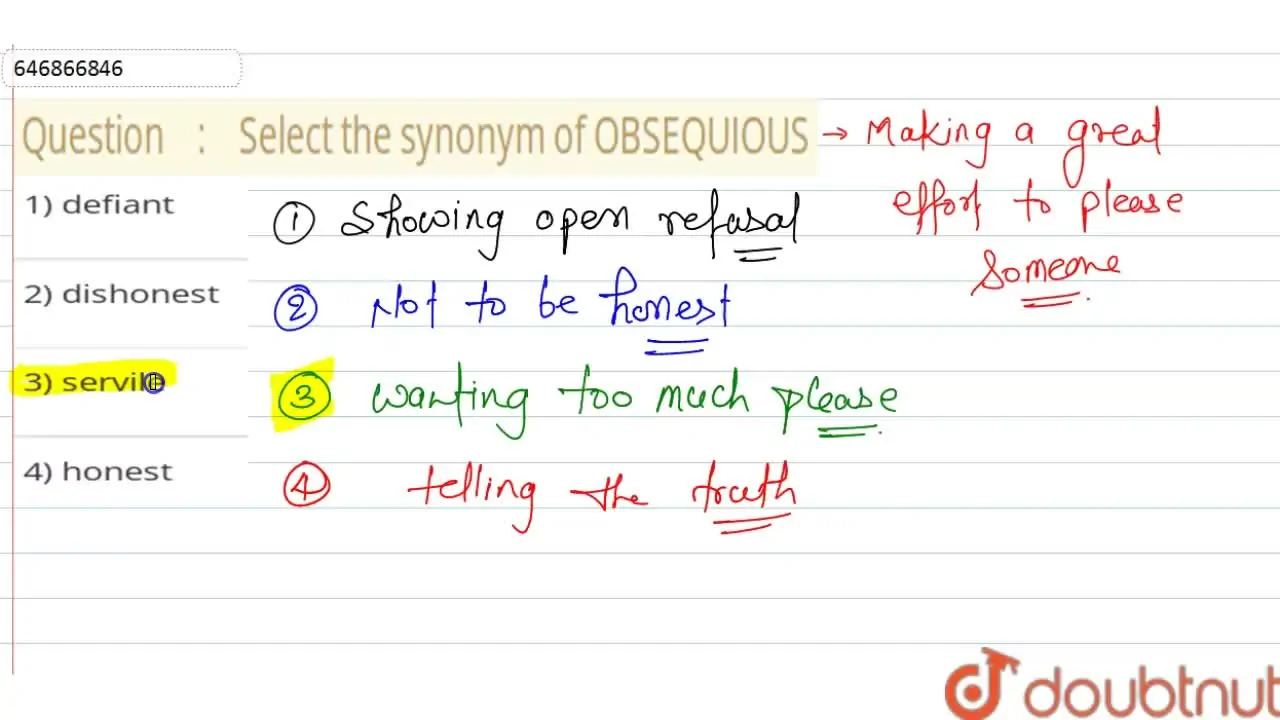 646866846
Question : Select the synonym of OBSEQUIOUS → Making a great
effort to please
someone
1) defiant
① Showing open refusal
2) dishonest
② Not to be honest
3) servile
③ wanting too much please
4) honest
④ telling the truth
doubtnut